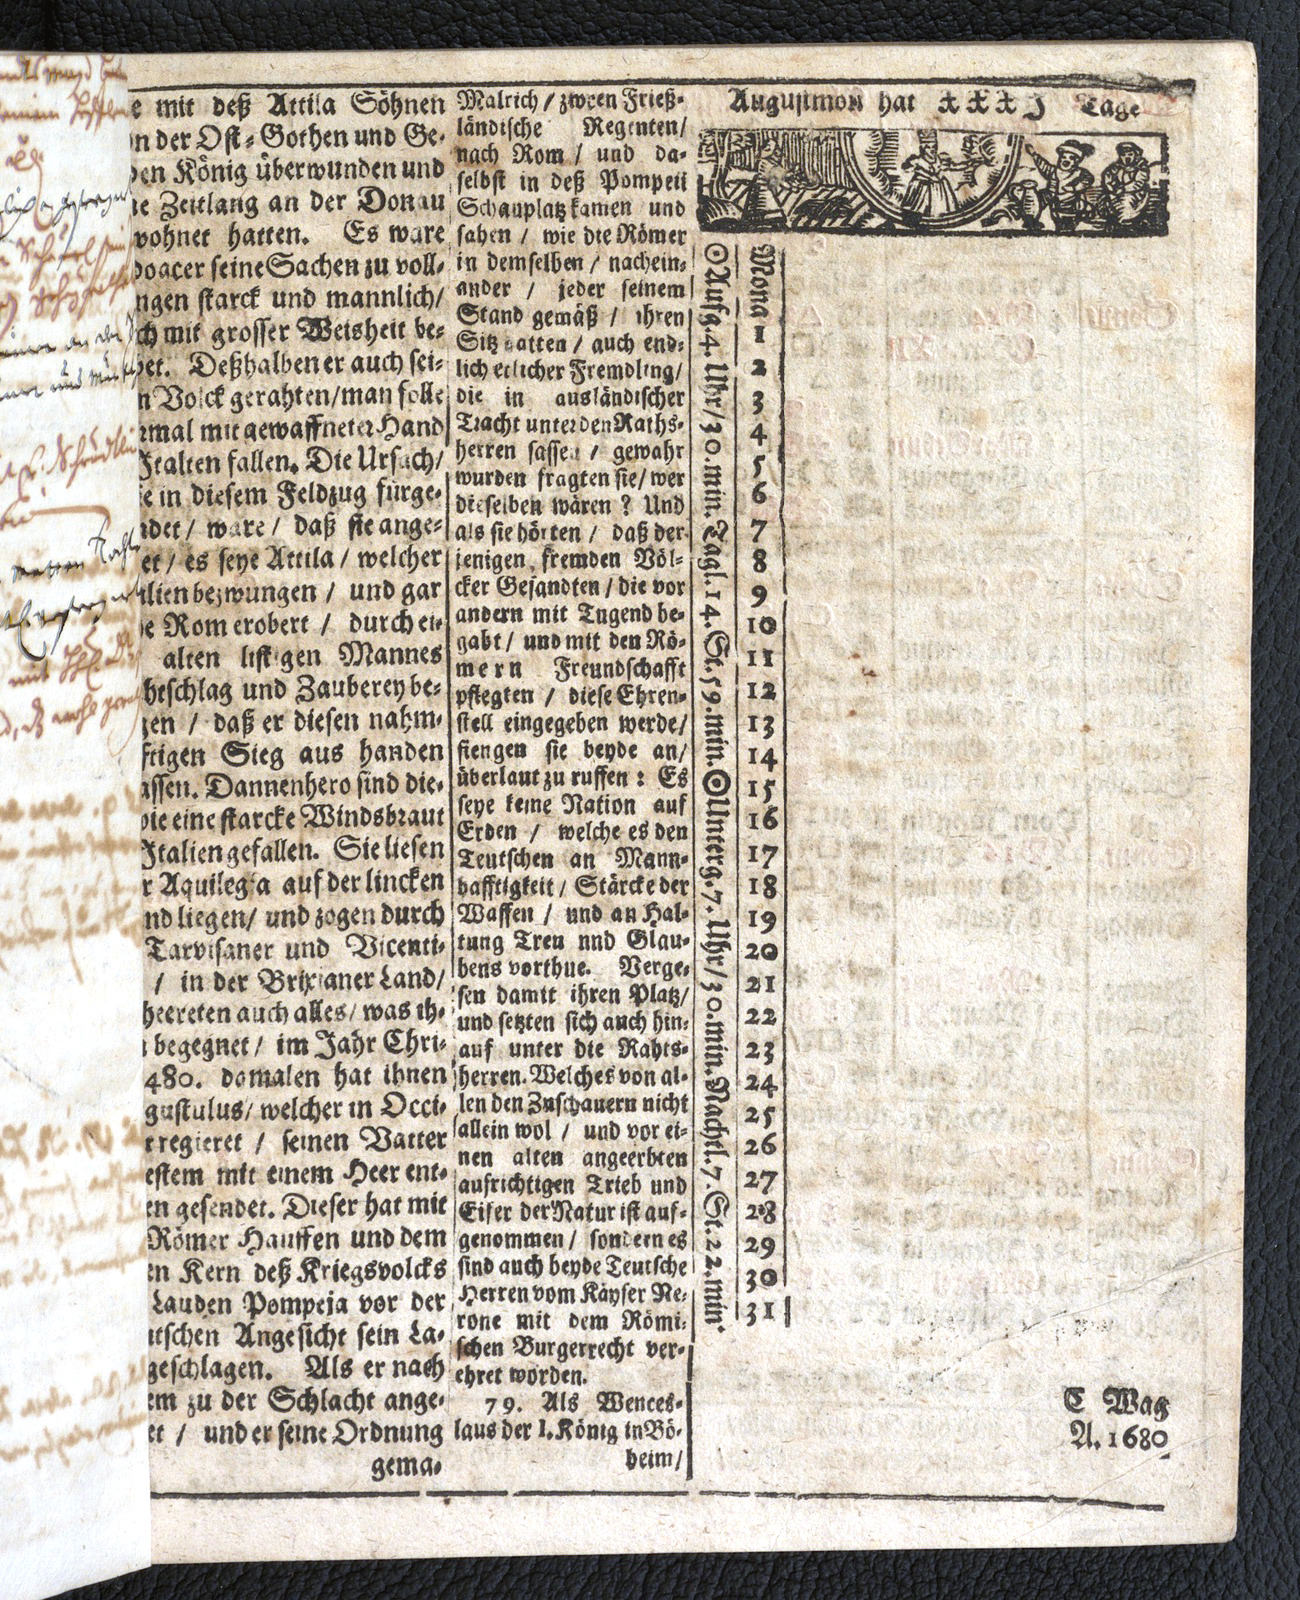 mit deß Attila Söhnen
der Ost-Gothen und Ge-
König überwunden und
Zeitlang an der Donau
wohnet hatten. Es ware
doacer seine Sachen zu voll-
ngen starck und mannlich/
mit grosser Weisheit be-
et. Deßhalben er auch sei-
Volck gerahten/ man solle
mal mit gewaffneter Hand
Italien fallen. Die Ursach/
in diesem Feldzug fürge-
det/ ware/ daß sie ange-
et/ es seye Attila/ welcher
lien bezwungen/ und gar
Rom erobert/ durch ei-
alten listigen Mannes
beschlag und Zauberey be-
en/ daß er diesen nahm-
ftigen Sieg aus handen
assen. Dannenhero sind die-
wie eine starcke Windsbraut
Italien gefallen. Sie liesen
Aquilegia auf der lincken
nd liegen/ und zogen durch
Tarvisaner und Vicenti-
/ in der Brixianer Land/
heereten auch alles/ was ih-
begegnet/ im Jahr Chri-
480. damalen hat ihnen
gustulus/ welcher in Occi-
regieret/ seinen Vatter
estem mit einem Heer ent-
en gesendet. Dieser hat mit
Römer Hauffen und dem
en Kern deß Kriegsvolcks
Lauden Pompeja vor der
utschen Angesicht sein La-
geschlagen. Als er nach
em zu der Schlacht ange-
et/ und er seine Ordnung
gema-
Malrich/ zween Frieß-
ländische Regenten/
nach Rom/ und da-
selbst in deß Pompeii
Schauplatz kamen und
sahen/ wie die Römer
in demselben/ nachein-
ander/ jeder seinem
Stand gemäß/ ihren
Sitz hatten/ auch end-
lich etlicher Fremdling/
die in ausländischer
Tracht unter den Raths-
herren sassen/ gewahr
wurden fragten sie/ wer
dieselben wären? Und
als sie hörten/ daß der-
jenigen fremden Völ-
cker Gesandten/ die vor
andern mit Tugend be-
gabt/ und mit den Rö-
mern Freundschafft
pflegten/ diese Ehren-
stell eingegeben werde/
fiengen sie beyde an/
überlaut zu ruffen: Es
seye keine Nation auf
Erden/ welche es den
Teutschen an Mann-
hafftigkeit/ Stärcke der
Waffen/ und an Hal-
tung Treu nnd Glau-
bens vorthue. Verge-
sen damit ihren Platz/
und setzten sich auch hin-
auf unter die Rahts-
herren. Welches von al-
len den Zuschauern nicht
allein wol/ und vor ei-
nen alten angeerbten
aufrichtigen Trieb und
Eifer der Natur ist auf-
genommen/ sondern es
sind auch beyde Teutsche
Herren vom Käyser Ne-
rone mit dem Römi-
schen Burgerrecht ver-
ehret worden.
79. Als Wences-
laus der I. König in Bö-
heim/
Augustmon hat XXXJ Tage
☉ Aufg. 4. Uhr/ 30. min. Tagl. 14. St. 59. min. ☉ Unterg. 7. Uhr/ 30. min. Nachtl. 7. St. 22. min.
Mona
1
2
3
4
5
6
7
8
9
10
11
12
13
14
15
16
17
18
19
20
21
22
23
24
25
26
27
28
29
30
31
C Wag
A. 1680